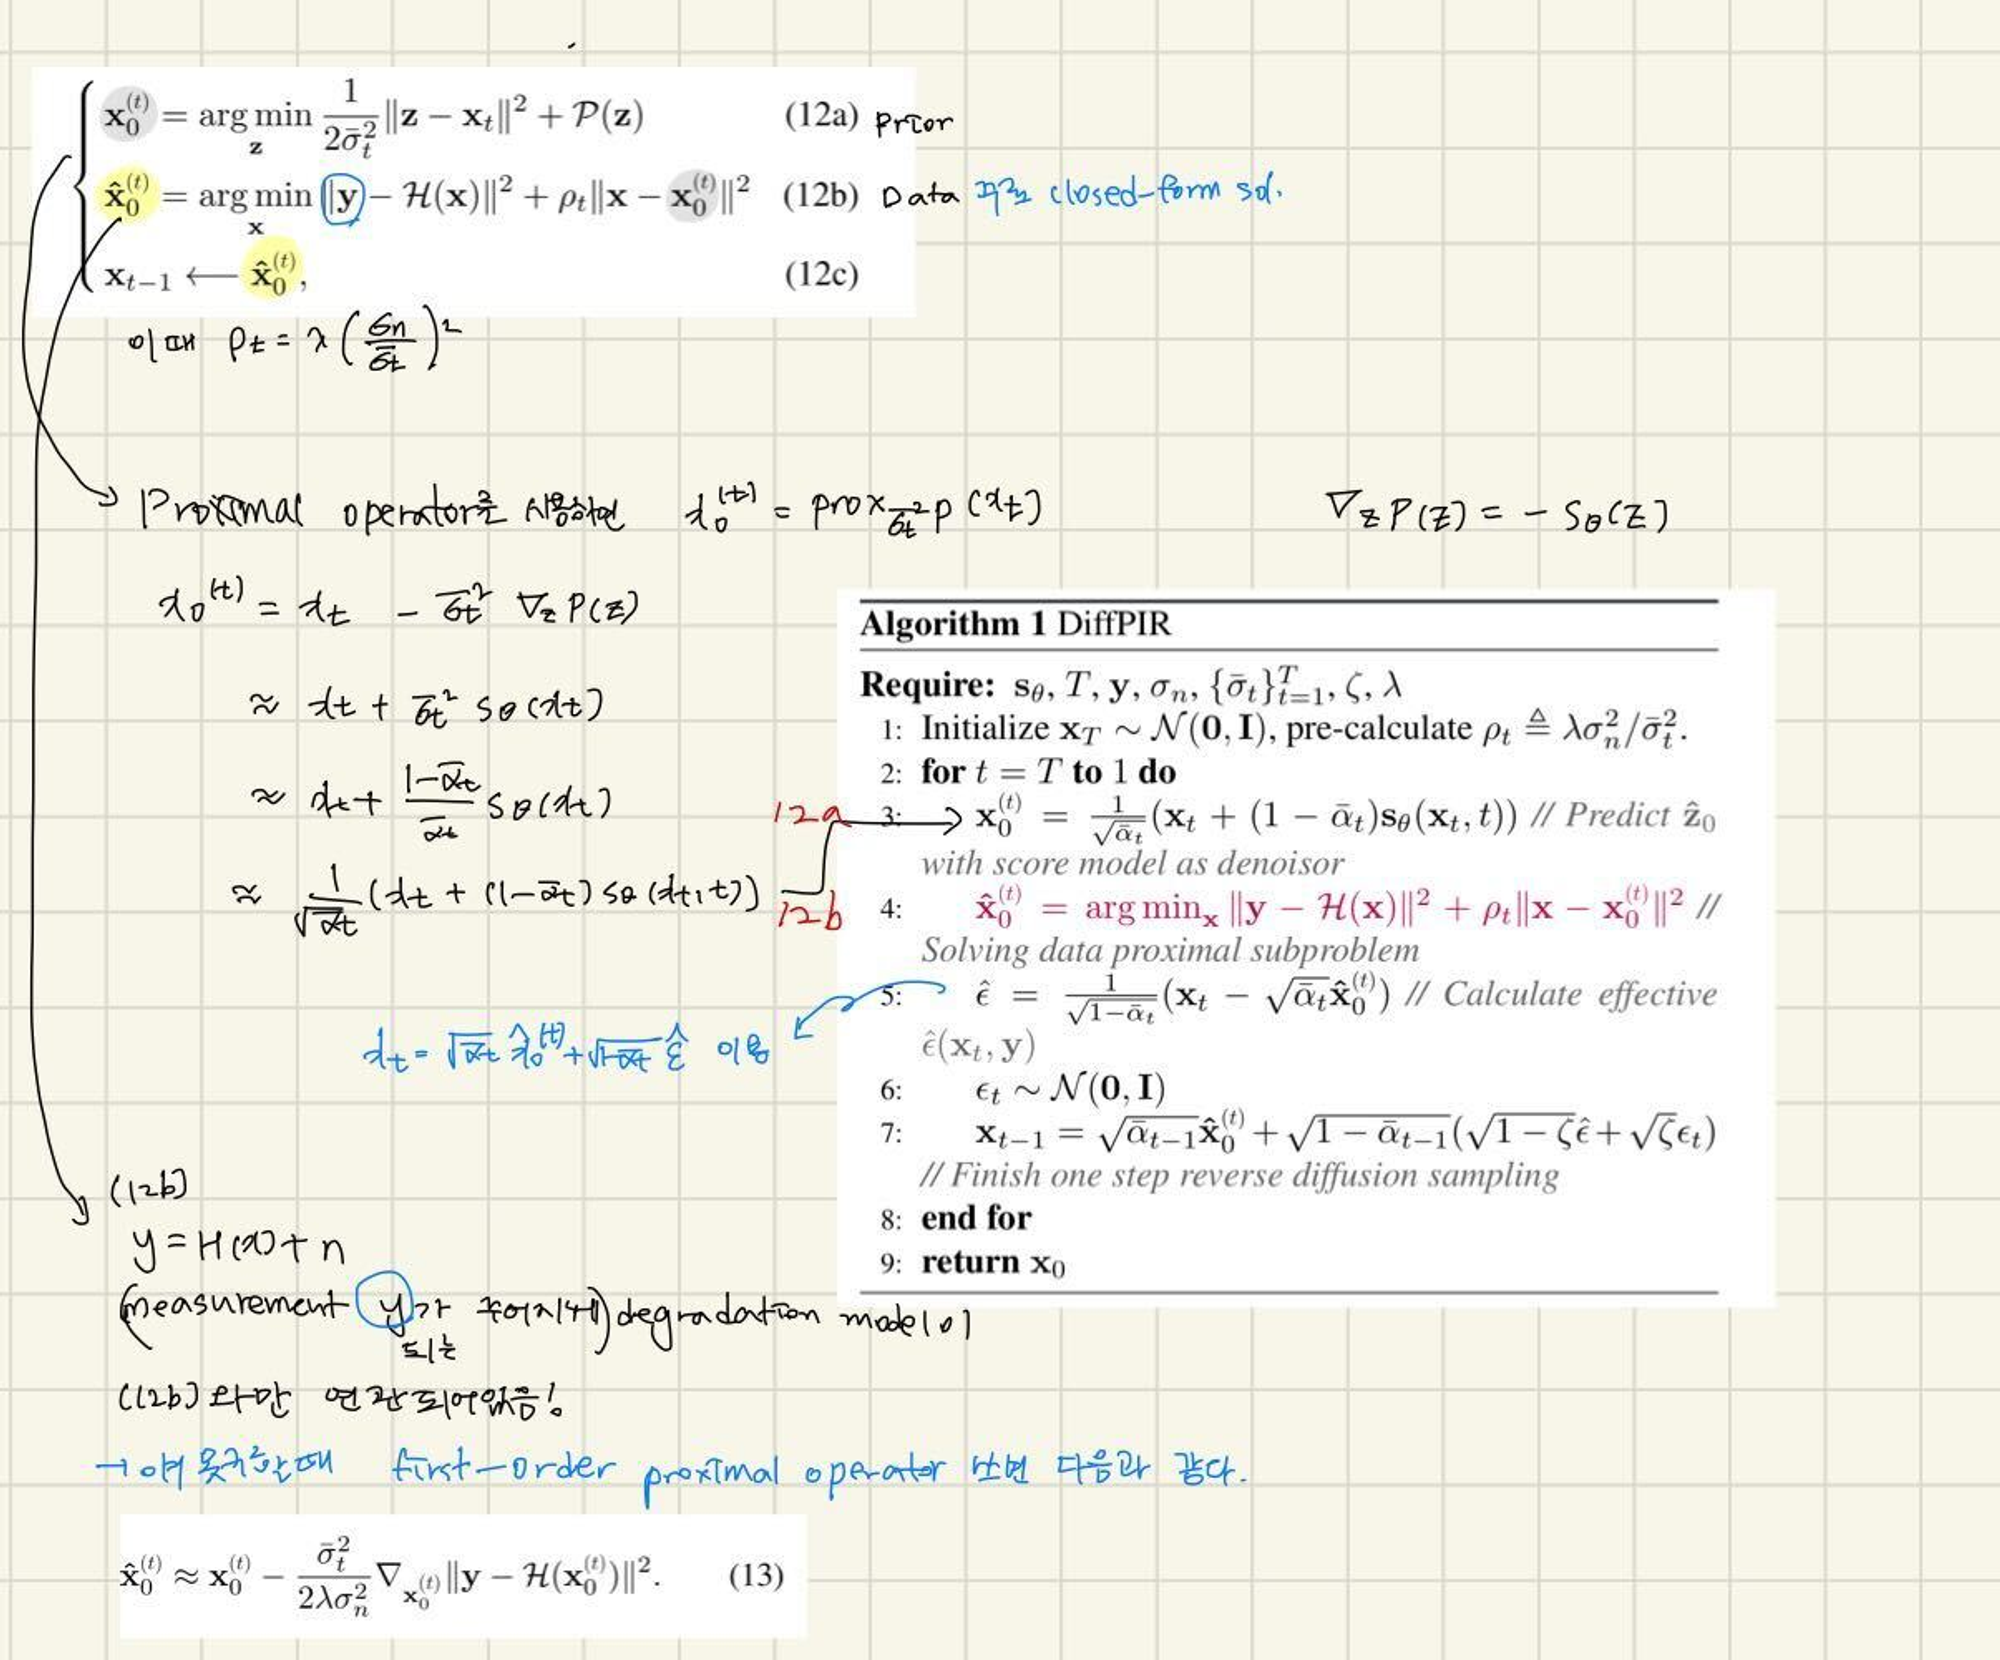 x_0^{(t)} = arg min_z 1/(2σ̄_t^2) ‖z − x_t‖^2 + P(z) (12a) prior
x̂_0^{(t)} = arg min_x ‖y − H(x)‖^2 + ρ_t‖x − x_0^{(t)}‖^2 (12b) Data 주로 closed-form sol.
x_{t−1} ⟵ x̂_0^{(t)}, (12c)
이때 ρ_t = λ(σ_n/σ̄_t)^2
Proximal operator를 사용하면 x_0^{(t)} = prox_{σ̄_t^2 P}(x_t) ∇_z P(z) = − s_θ(z)
x_0^{(t)} = x_t − σ̄_t^2 ∇_z P(z)
≈ x_t + σ̄_t^2 s_θ(x_t)
≈ x_t + (1−ᾱ_t)/ᾱ_t s_θ(x_t)
≈ 1/√ᾱ_t (x_t + (1−ᾱ_t) s_θ(x_t, t))
12a
12b
Algorithm 1 DiffPIR
Require: s_θ, T, y, σ_n, {σ̄_t}_{t=1}^T, ζ, λ
1: Initialize x_T ∼ N(0, I), pre-calculate ρ_t ≜ λσ_n^2/σ̄_t^2.
2: for t = T to 1 do
3: x_0^{(t)} = 1/√ᾱ_t (x_t + (1 − ᾱ_t)s_θ(x_t, t)) // Predict ẑ_0
with score model as denoisor
4: x̂_0^{(t)} = arg min_x ‖y − H(x)‖^2 + ρ_t‖x − x_0^{(t)}‖^2 //
Solving data proximal subproblem
5: ϵ̂ = 1/√(1−ᾱ_t) (x_t − √ᾱ_t x̂_0^{(t)}) // Calculate effective
ϵ̂(x_t, y)
6: ϵ_t ∼ N(0, I)
7: x_{t−1} = √ᾱ_{t−1} x̂_0^{(t)} + √(1 − ᾱ_{t−1})(√(1 − ζ)ϵ̂ + √ζϵ_t)
// Finish one step reverse diffusion sampling
8: end for
9: return x_0
x_t = √ᾱ_t x̂_0^{(t)} + √(1−ᾱ_t) ε̂ 이용
(12b)
y = H(x) + n
(measurement y가 주어지게) degradation model이
되는
(12b)와만 연관되어있음!
→ first-order proximal operator 쓰면 다음과 같다.
x̂_0^{(t)} ≈ x_0^{(t)} − σ̄_t^2/(2λσ_n^2) ∇_{x_0^{(t)}} ‖y − H(x_0^{(t)})‖^2. (13)